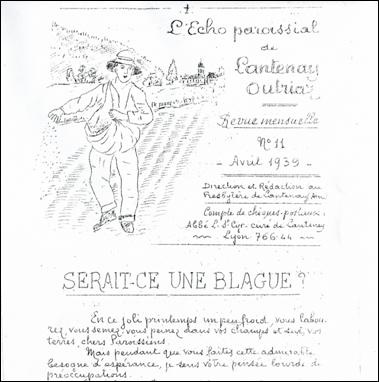 L'Echo paroissial
de
Lantenay
Outriaz
Revue mensuelle
N° 11
- Avril 1939 -
Direction et Rédaction au
Presbytère de Lantenay Ain
Compte de chèques-postaux:
Abbé L. St Cyr - curé de Lantenay
Lyon 766-44
SERAIT-CE UNE BLAGUE ?
En ce joli printemps un peu froid, vous labou-
rez, vous semez, vous peinez dans vos champs et vos
terres, chers Paroissiens.
Mais pendant que vous faites cette admirable
besogne d'espérance, je sens votre pensée lourde de
préoccupations.